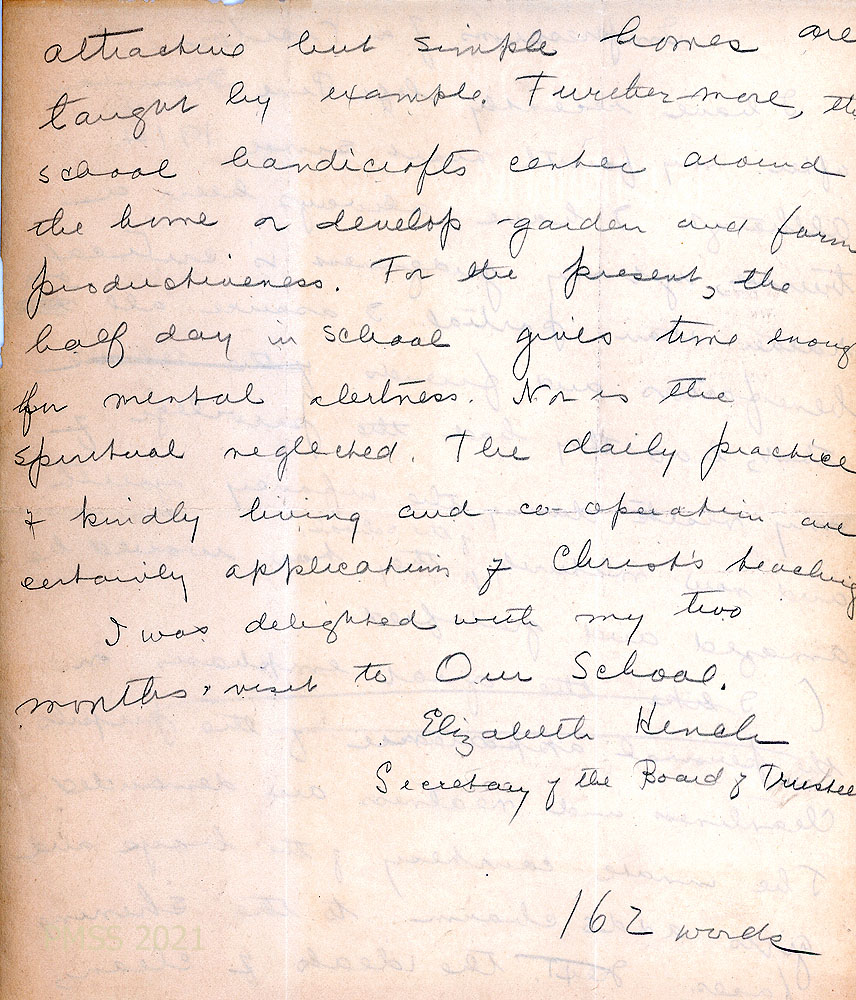 attractive but simple homes are
taught by example. Furthermore, the
school handicrafts center around
the home or develop garden and farm
productiveness. For the present, the
half day in school gives time enoug
for mental alertness. Nor is the
spiritual neglected. The daily practice
of kindly living and co-operation are
certainly applications of Christ's teaching
I was delighted with my two
months' visit to Our School.
Elizabeth Hench
Secretary of the Board of Trustee
162 words
PMSS 2021